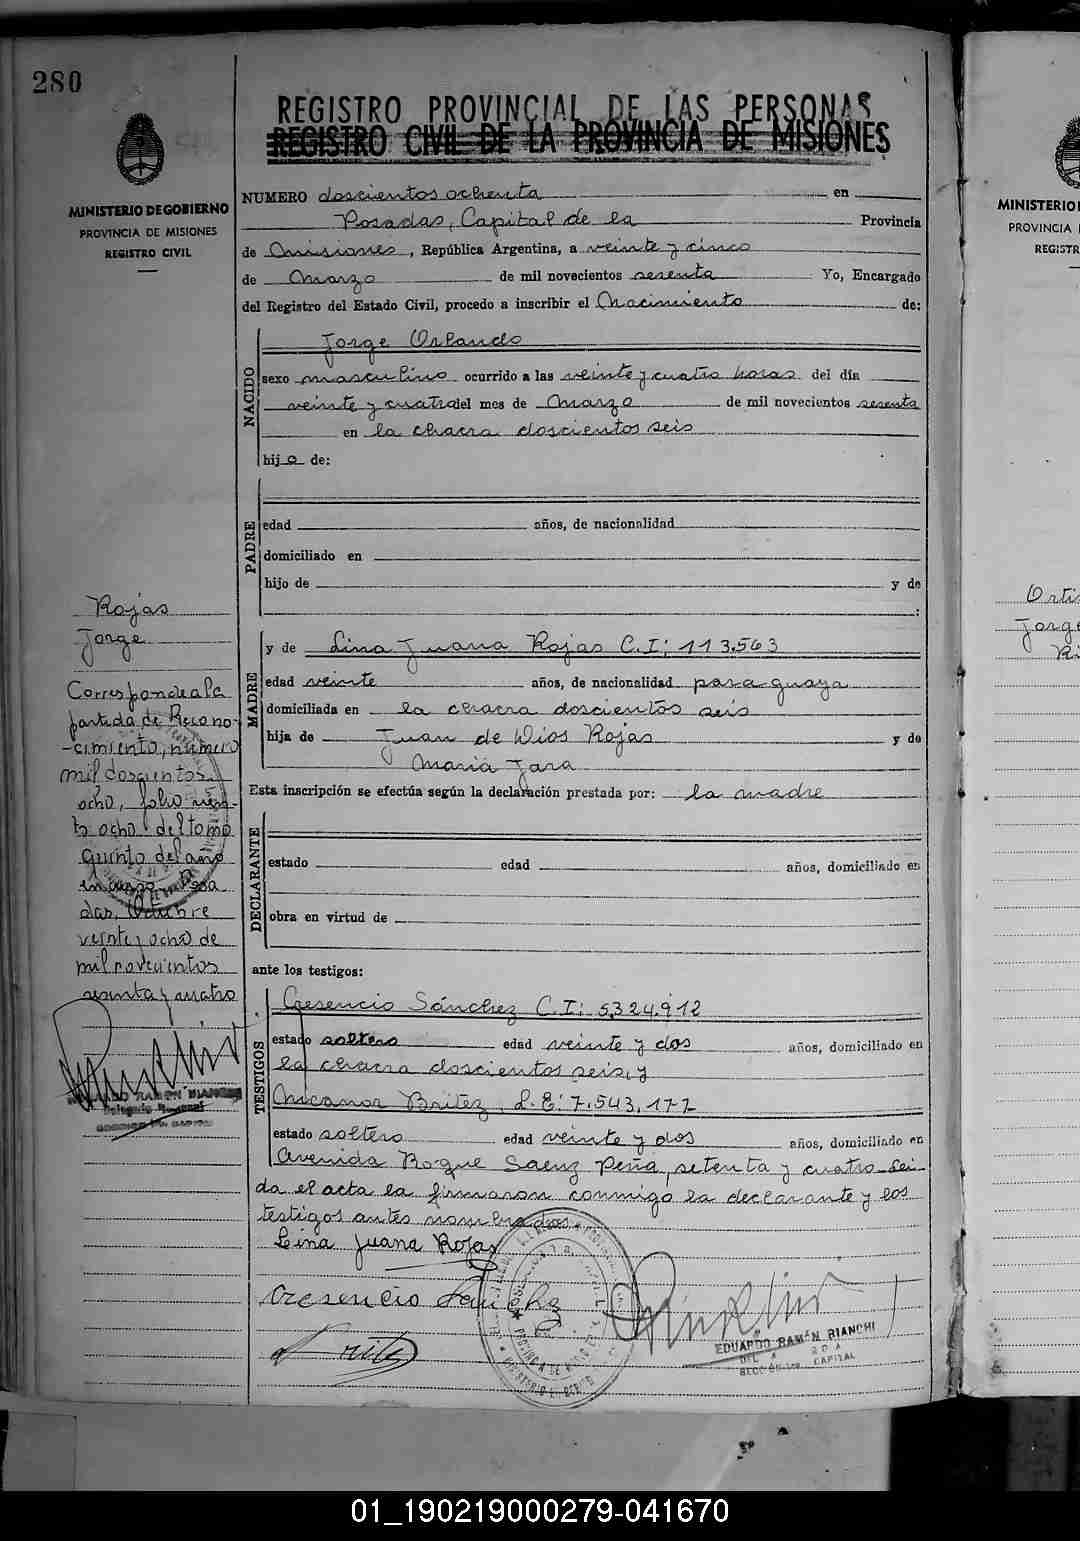 280
REGISTRO PROVINCIAL DE LAS PERSONAS
REGISTRO CIVIL DE LA PROVINCIA DE MISIONES
MINISTERIO DE GOBIERNO
PROVINCIA DE MISIONES
REGISTRO CIVIL
NUMERO doscientos ochenta en
Posadas, Capital de la Provincia
de Misiones, República Argentina, a veinte y cinco
de Marzo de mil novecientos sesenta Yo, Encargado
del Registro del Estado Civil, procedo a inscribir el Nacimiento de:
NACIDO
Jorge Orlando
sexo masculino ocurrido a las veinte y cuatro horas del día
veinte y cuatro del mes de Marzo de mil novecientos sesenta
en la chacra doscientos seis
hijo de:
PADRE
edad años, de nacionalidad
domiciliado en
hijo de y de
:
MADRE
y de Lina Juana Rojas C.I: 113.563
edad veinte años, de nacionalidad paraguaya
domiciliada en la chacra doscientos seis
hija de Juan de Dios Rojas y de
Maria Jara
Esta inscripción se efectúa según la declaración prestada por: la madre
DECLARANTE
estado edad años, domiciliado en
obra en virtud de
ante los testigos:
TESTIGOS
Cresencio Sánchez C.I: 5.324.912
estado soltero edad veinte y dos años, domiciliado en
la chacra doscientos seis, y
Nicanor Britez, L.E: 7.543.177
estado soltero edad veinte y dos años, domiciliado en
Avenida Roque Saenz Peña, setenta y cuatro. Lei-
da el acta la firmaron conmigo la declarante y los
testigos antes nombrados
Lina Juana Rojas
Cresencio Sanchez
N Britez
EDUARDO RAMÓN BIANCHI
CAPITAL
Rojas
Jorge
Corresponde a la
partida de Recono-
cimiento, número
mil doscientos
ocho, folio vein-
te ocho del tomo
Quinto del año
en curso. Posa
das, Octubre
veinte y ocho de
mil novecientos
sesenta y cuatro
MINISTERIO
PROVINCIA
REGISTR
Orti
Jorge
Ri
01_190219000279-041670